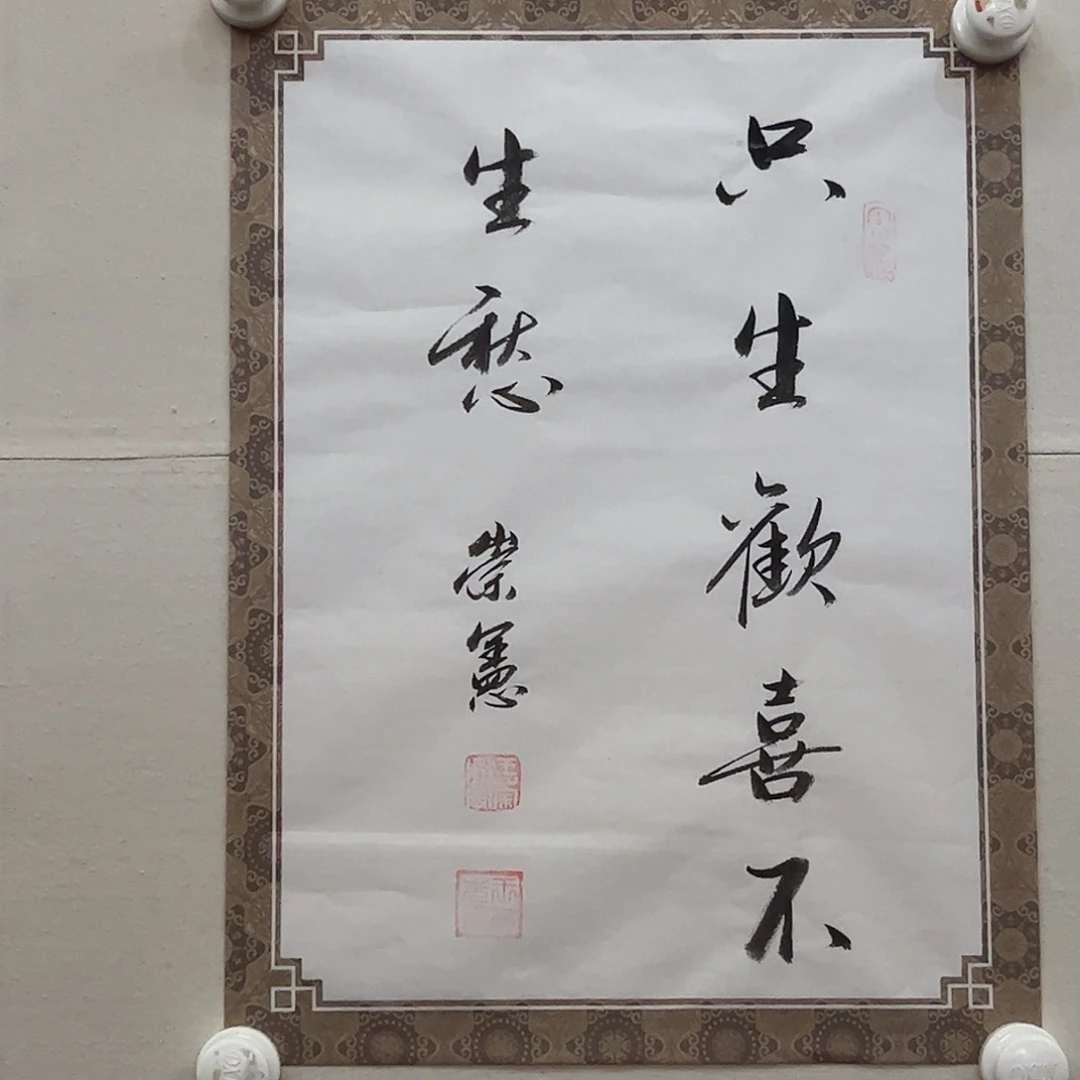 只生歡喜不
生愁 崇憲